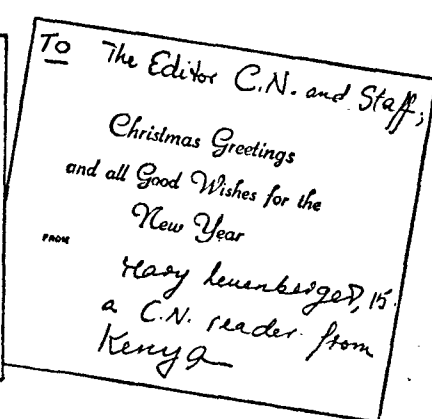 TO The Editor C.N. and Staff;
Christmas Greetings
and all Good Wishes for the
New Year
FROM
Mary Leuenberger, 15.
a C.N. reader from
Kenya